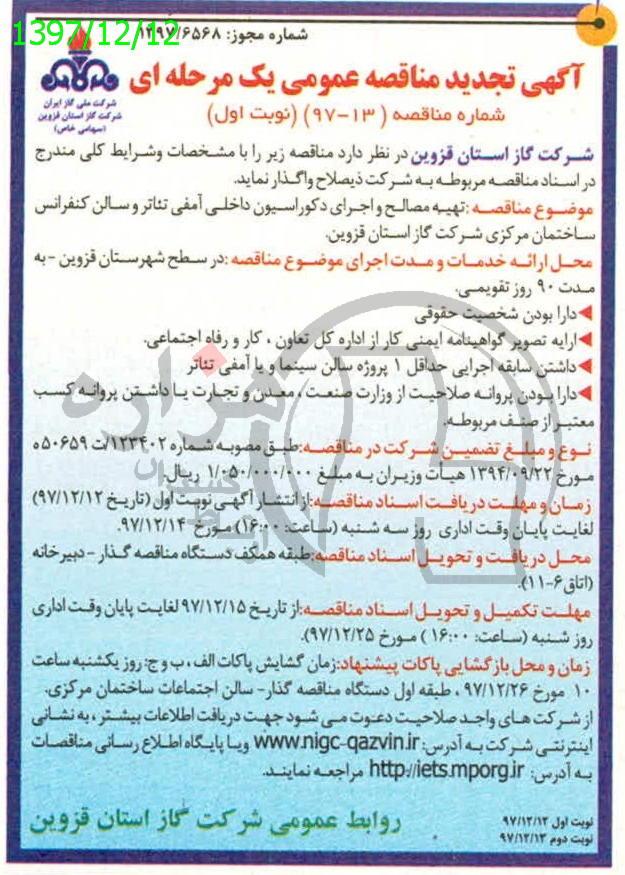 1397/12/12
شماره مجوز: ۱۴۹۷/۶۵۶۸
آگهی تجدید مناقصه عمومی یک مرحله ای
شماره مناقصه ( ۱۳-۹۷) (نوبت اول)
شرکت ملی گاز ایران
شرکت گاز استان قزوین
(سهامی خاص)
شرکت گاز استان قزوین در نظر دارد مناقصه زیر را با مشخصات وشرایط کلی مندرج
در اسناد مناقصه مربوطه به شرکت ذیصلاح واگذار نماید.
موضوع مناقصه :تهیه مصالح و اجرای دکوراسیون داخلی آمفی تئاتر و سالن کنفرانس
ساختمان مرکزی شرکت گاز استان قزوین.
محل ارائه خدمات و مدت اجرای موضوع مناقصه :در سطح شهرستان قزوین -به
مدت ۹۰ روز تقویمی.
◀دارا بودن شخصیت حقوقی
◀ارایه تصویر گواهینامه ایمنی کار از اداره کل تعاون ، کار و رفاه اجتماعی.
◀داشتن سابقه اجرایی حداقل ۱ پروژه سالن سینما و یا آمفی تئاتر
◀دارا بودن پروانه صلاحیت از وزارت صنعت ، معدن و تجارت یا داشتن پروانه کسب
معتبر از صنف مربوطه.
نوع و مبلغ تضمین شرکت در مناقصه:طبق مصوبه شماره ۱۲۳۴۰۲/ت ۵۰۶۵۹ه
مورخ ۱۳۹۴/۰۹/۲۲ هیأت وزیران به مبلغ ۱/۰۵۰/۰۰۰/۰۰۰ ریال.
زمان و مهلت دریافت اسناد مناقصه:از انتشار آگهی نوبت اول (تاریخ ۹۷/۱۲/۱۲)
لغایت پایان وقت اداری روز سه شنبه (ساعت: ۱۶:۰۰) مورخ ۹۷/۱۲/۱۴.
محل دریافت و تحویل اسناد مناقصه:طبقه همکف دستگاه مناقصه گذار -دبیرخانه
(اتاق۶-۱۱).
مهلت تکمیل و تحویل اسناد مناقصه:از تاریخ ۹۷/۱۲/۱۵ لغایت پایان وقت اداری
روز شنبه (ساعت: ۱۶:۰۰ ) مورخ ۹۷/۱۲/۲۵).
زمان و محل بازگشایی پاکات پیشنهاد:زمان گشایش پاکات الف ، ب و ج: روز یکشنبه ساعت
۱۰ مورخ ۹۷/۱۲/۲۶ ، طبقه اول دستگاه مناقصه گذار- سالن اجتماعات ساختمان مرکزی.
از شرکت های واجد صلاحیت دعوت می شود جهت دریافت اطلاعات بیشتر ، به نشانی
اینترنتی شرکت به آدرس: www.nigc-qazvin.ir ویا پایگاه اطلاع رسانی مناقصات
به آدرس: http://iets.mporg.ir مراجعه نمایند.
نوبت اول ۹۷/۱۲/۱۲
نوبت دوم ۹۷/۱۲/۱۳
روابط عمومی شرکت گاز استان قزوین
هزاره